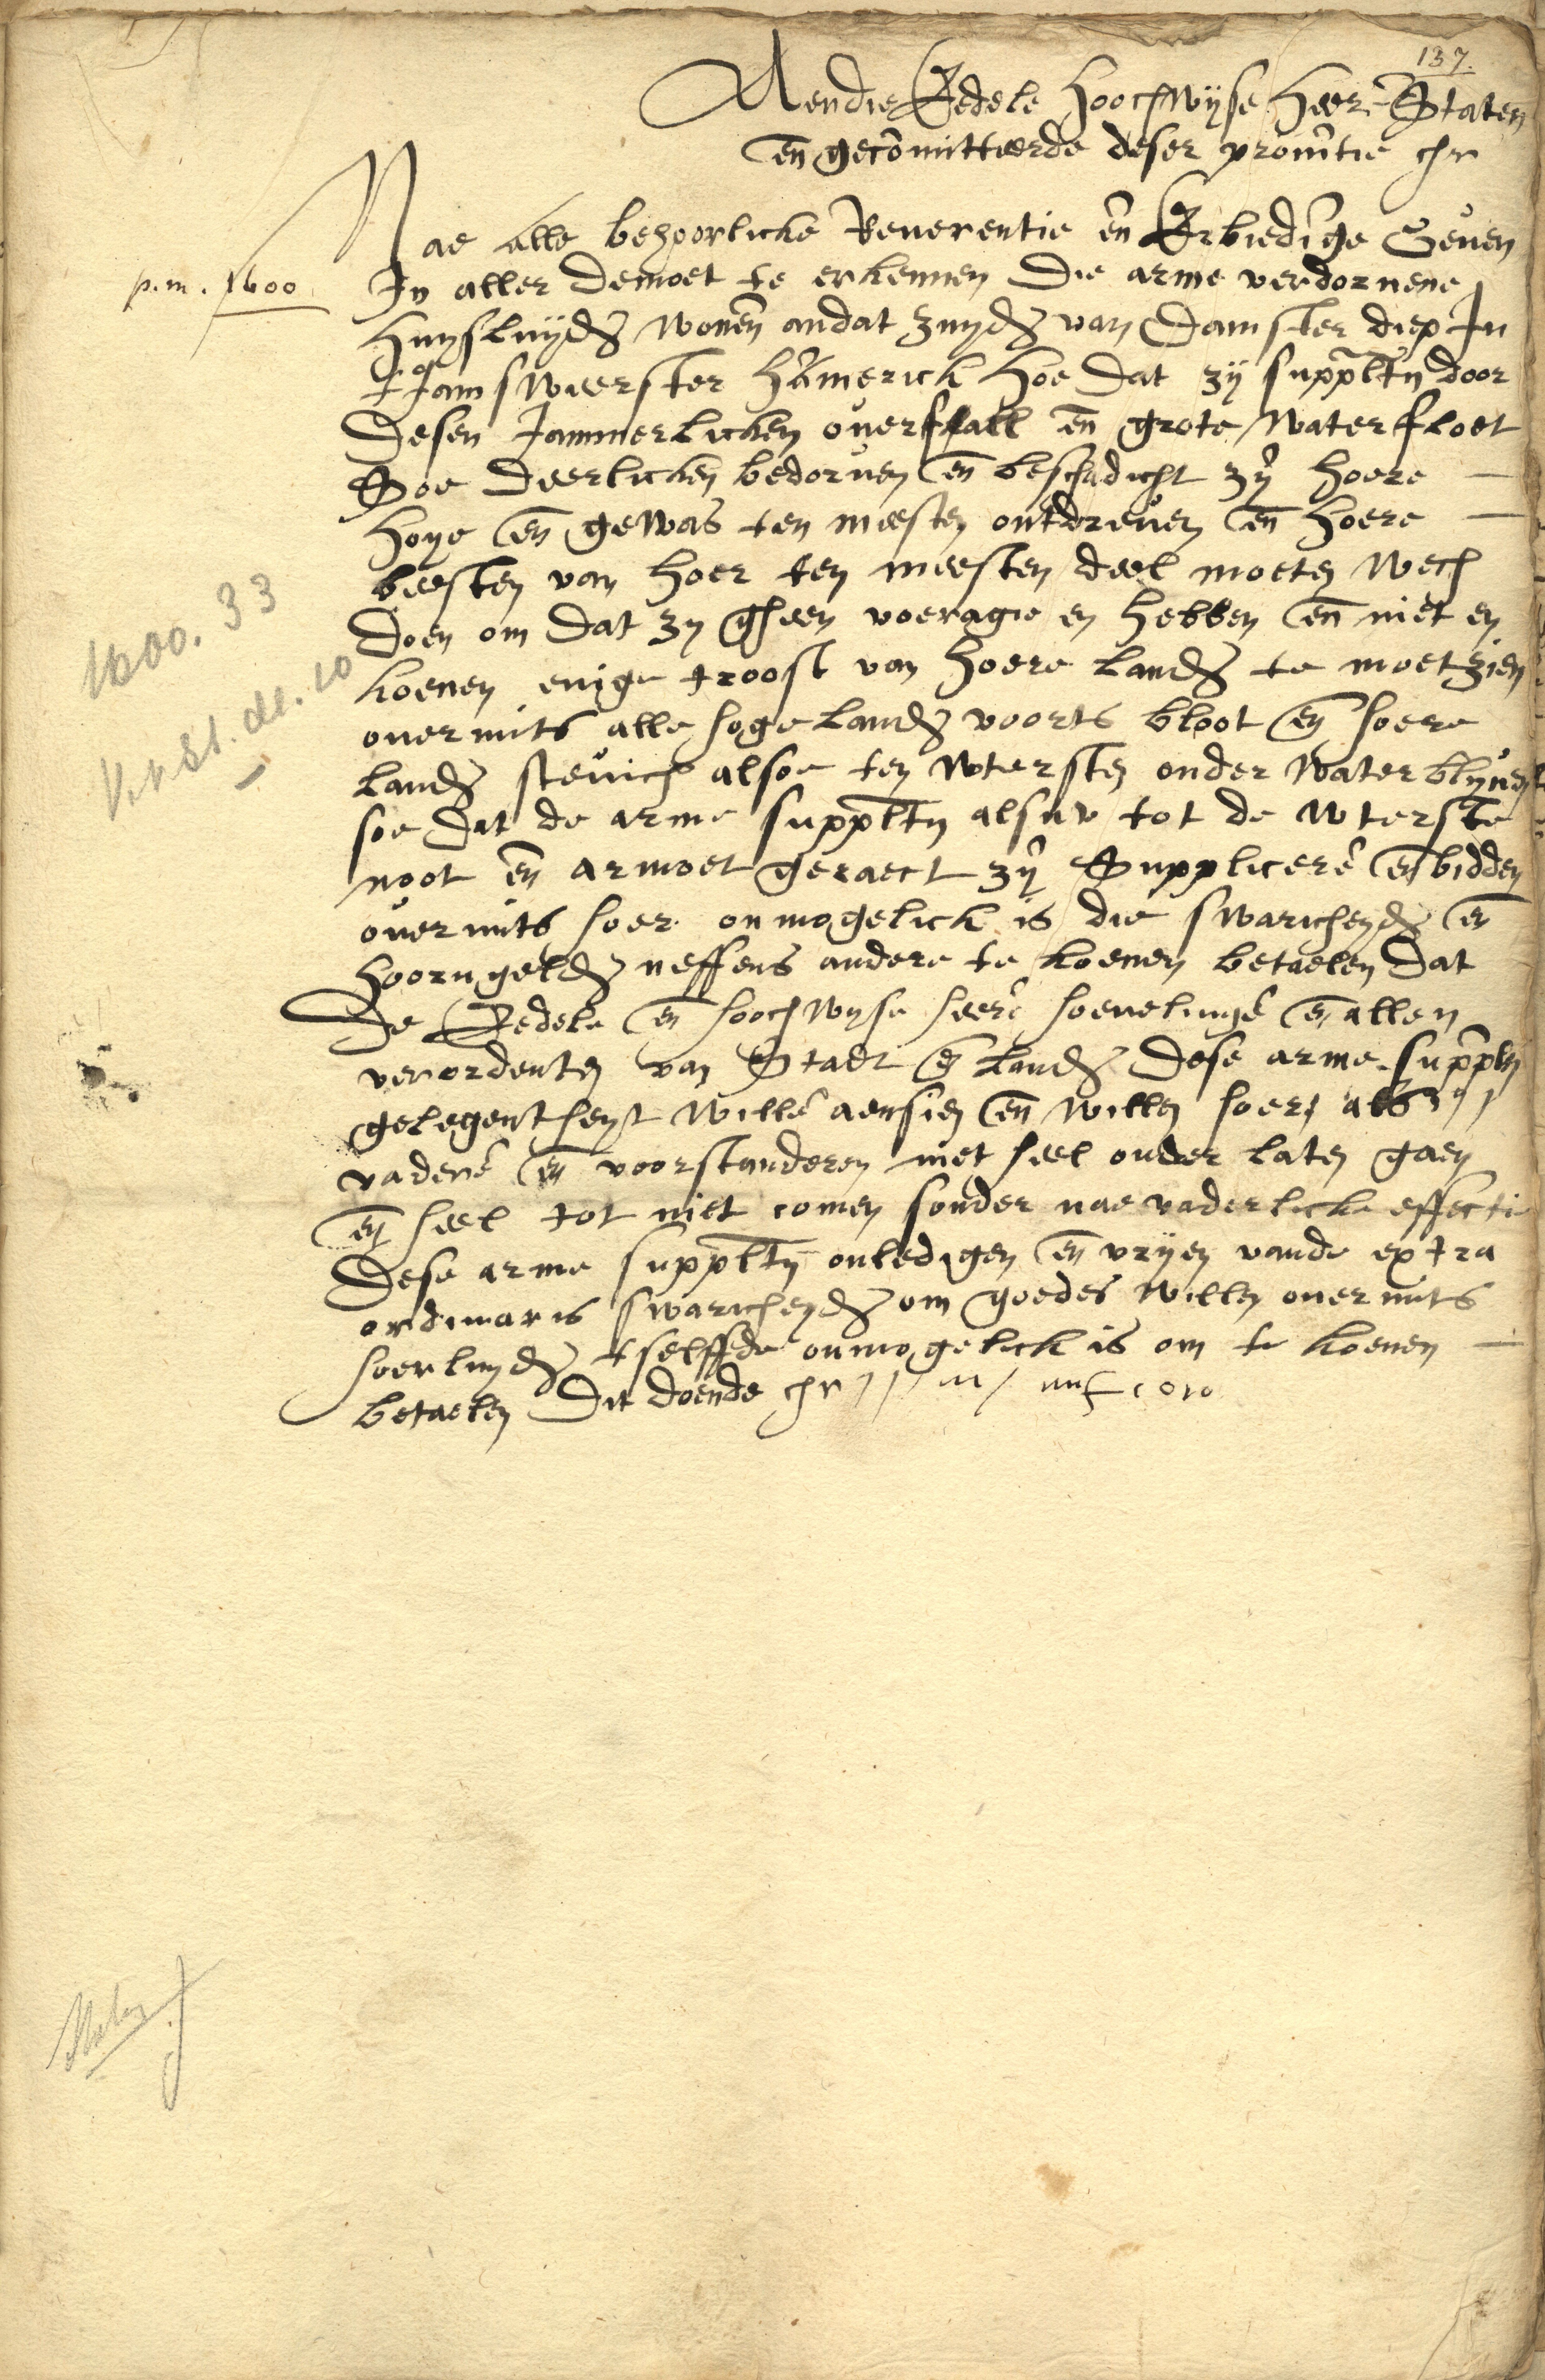 137.
Aendie Eedele hoochwijse heerē Staten
en̄ gecōmitteerde deser provītie etc
Nae alle behoorlicke Reuerentie en̄ Erbiedīge Geuen
p.m. 1600
In aller demoet te erkennen die arme verdoruene
huijsluijden wonen̄ andat zuijden van Damster diep In
Jamswierster hamerick hoe dat zij supplt̄n door
desen Jammerlicken ouerffall en̄ grote waterfloet
Soe deerlicken bedoruen en̄ beschadicht zij hoere
hoye en̄ gewas ten meesten ontdreuen en̄ hoere
beesten van hoer ten meesten deel moeten wech
doen om dat zy gheen voeragie en hebben en̄ niet en
koenen enige troost van hoere landen te moet zien
1600. 33
ouermits alle hoge landen voorts bloot en̄ hoere
landen steuich alsoe ten wtersten onder water blyuen
soe dat de arme supplt̄n alsnv tot de wterste
noot en̄ armoet geraect zij Supplicerē en̄ bidden
ouermits hoer onmogelick is die swaricheyden en̄
hoorngelden neffens andere te koenen betaelen dat
de Eedele en̄ hoochwyse heerē hoevelingē en̄ allen
verordenten van Stadt en̄ landen dese arme suppln̄
gelegentheyt willē aensien en̄ willen hoer als
vaderē en̄ voorstanderen niet heel onder laten gaen
en̄ heel tot niet comen sonder nae vaderlicke effectie
dese arme supplt̄n onledigen en̄ vrijen vande extra
ordinaris swaricheyden om goedes willen ouermits
hoerluyden tselffde onmogelick is om te koenen
betaelen Dit doende etc